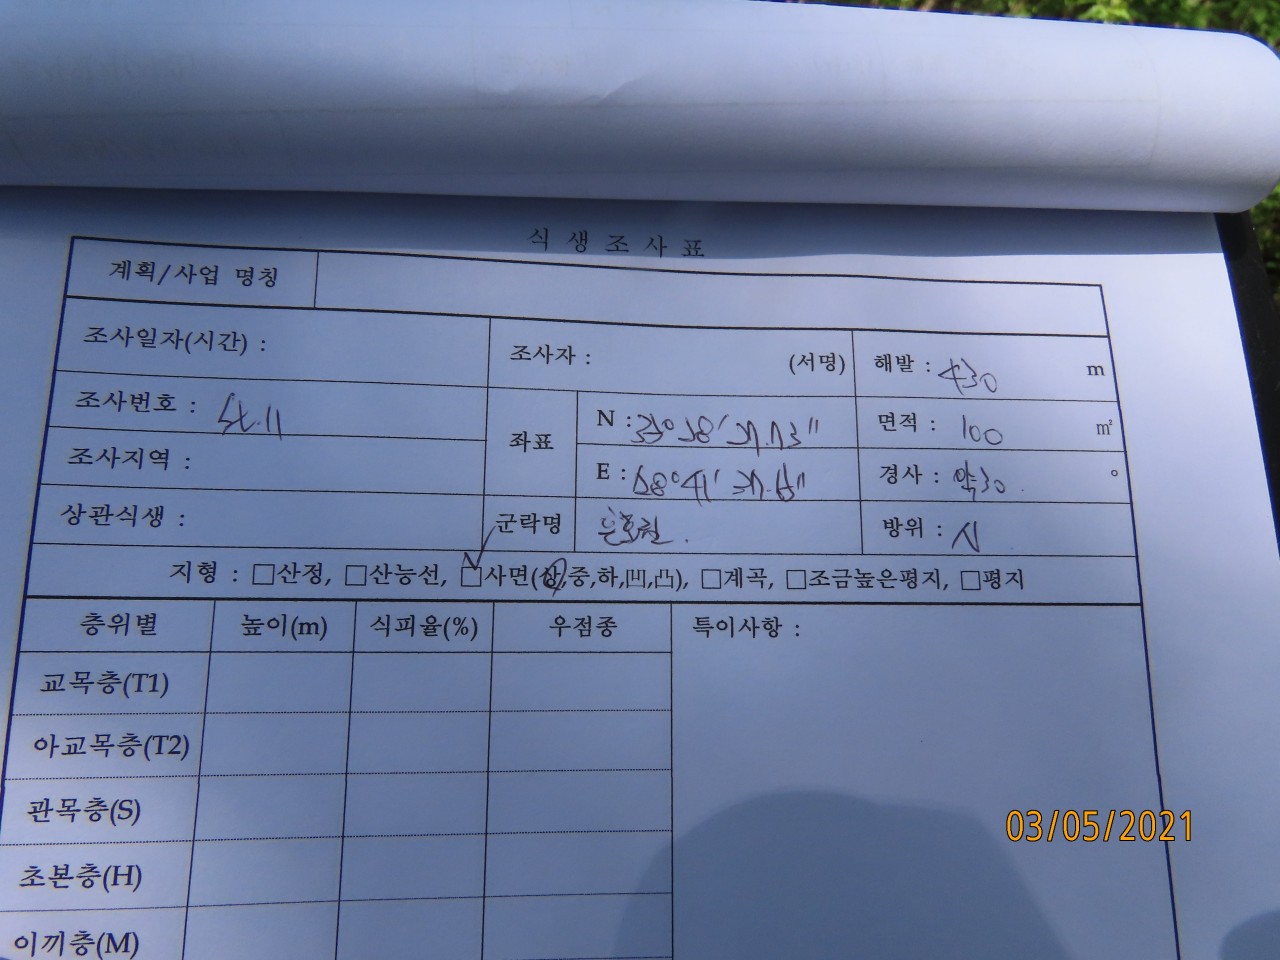 식 생 조 사 표
계획/사업 명칭
조사일자(시간) :
조사자 : (서명)
해발 : 430 m
조사번호 : St.11
좌표
N :
면적 : 100 ㎡
조사지역 :
E :
경사 : 약30 °
상관식생 :
군락명
방위 :
지형 : □산정, □산능선, □사면(상,중,하,凹,凸), □계곡, □조금높은평지, □평지
층위별 높이(m) 식피율(%) 우점종 특이사항 :
교목층(T1)
아교목층(T2)
관목층(S)
초본층(H)
이끼층(M)
03/05/2021